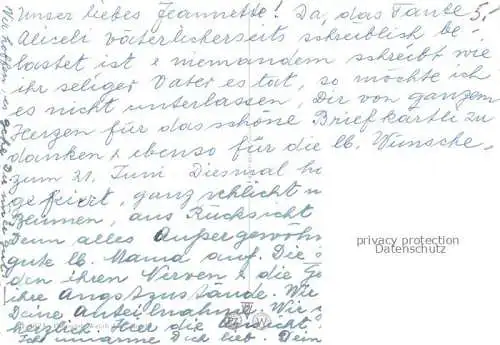 Unser liebes Jeannette! Da, das Tante 5.-
Aliceli väterlicherseits schreiblich be-
lastet ist & niemandem schreibt wie
ihr seliger Vater es tat, so möchte ich
es nicht unterlassen, Dir von ganzem
Herzen für das schöne Briefkärtli zu
danken & ebenso für die lb. Wünsche,
zum 21. Juni Diesmal
gefeiert, ganz schlicht
aus Rücksicht
Denn alles Außergewöhn
gute lb. Mama auf. Die
den ihren Nerven & die
ihre Angstzustände. Wie
Deine Anteilnahme. Wir
herzlich. Hier die
Ich umarme Dich lieb. Dein
privacy protection
Datenschutz